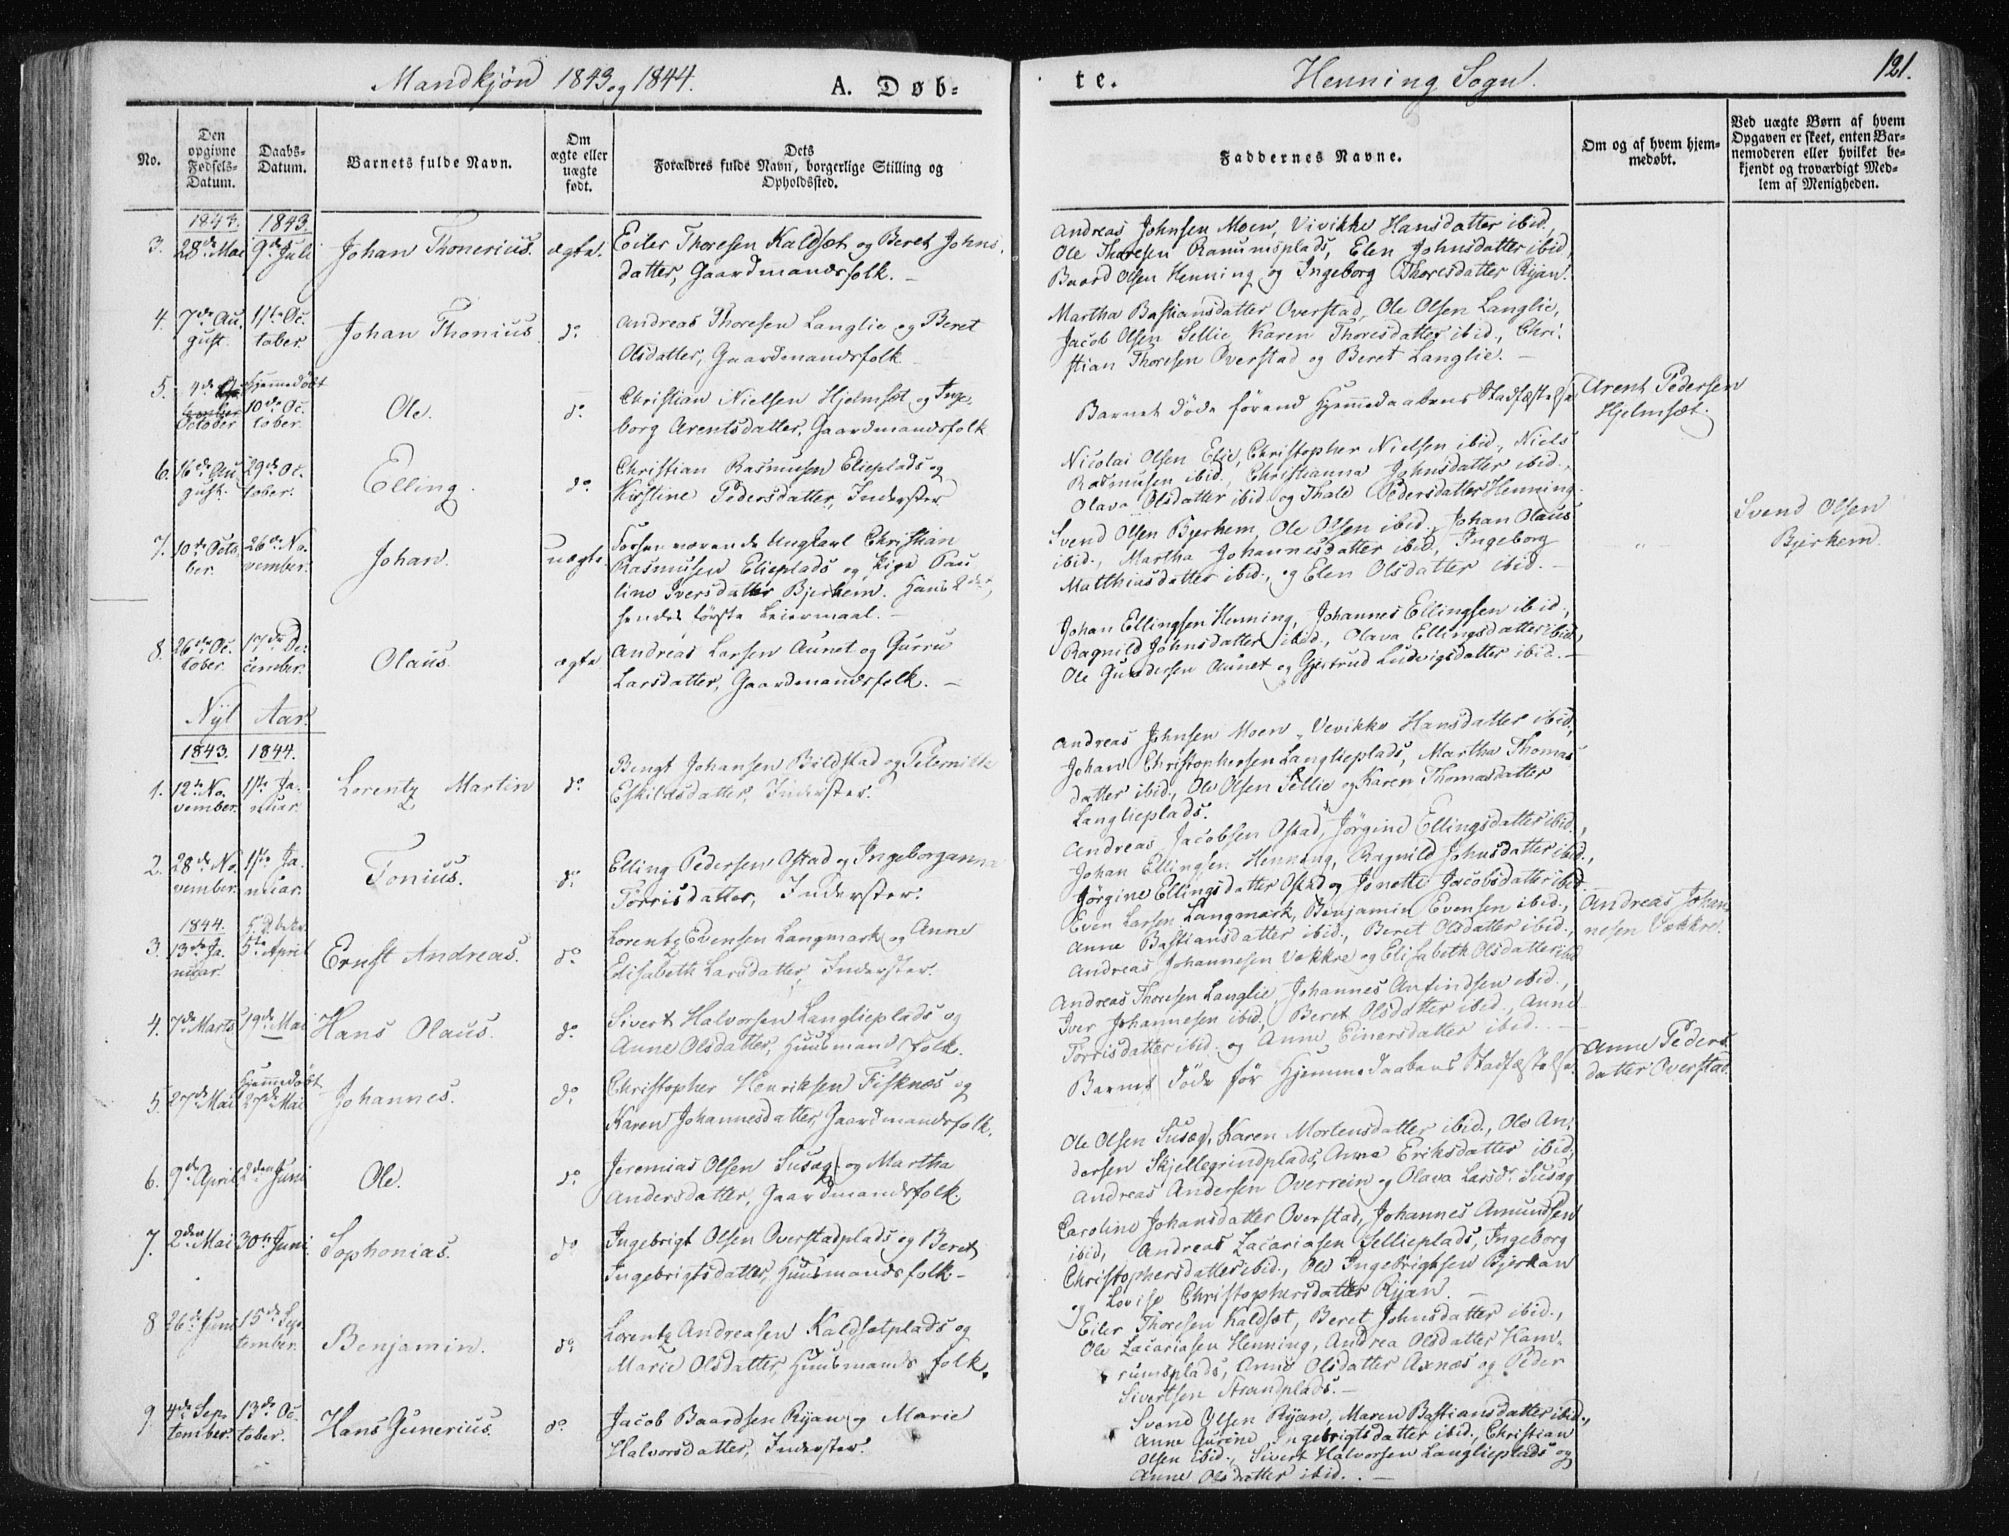 Mandkjøn 1843 og 1844.
A. Døb=
te.
Henning Sogn.
121.
No.
Den opgivne Fødsels-Datum.
Daabs-Datum.
Barnets fulde Navn.
Om ægte eller uægte født.
Dets Forældres fulde Navn, borgerlige Stilling og Opholdssted.
Faddernes Navne.
Om og af hvem hjemmedøbt.
Ved uægte Børn af hvem Opgaven er skeet, enten Barnemoderen eller hvilket bekjendt og troværdigt Medlem af Menigheden.
1843. 1843.
3. 28de Mai 9de Juli Johan Thonerius. ægte.
Eiler Thoresen Kaldsæt og Beret Johns-
datter, Gaardmandsfolk. –
Andreas Johnsen Moen, Vivikke Hansdatter ibid.,
Ole Thoresen Ramumsplads, Elen Johnsdatter ibid,
Baard Olsen Henning og Ingeborg Thoresdatter Ryan.
4. 7de August. 1ste October. Johan Thonius do
Andreas Thoresen Langlie og Beret
Olsdatter, Gaardmandsfolk
Martha Bastiansdatter Overstad, Ole Olsen Langlie,
Jacob Olsen Sellie, Karen Thoresdatter ibid., Chri-
stian Thoresen Overstad og Beret Langlie. –
5. 4de October Hjemmedöbt 10de October. Ole. do
Christian Nielsen Hjelmsæt og Inge-
borg Arentsdatter, Gaardmandsfolk
Barnet döde förend Hjemmedaabens Stadfæstelse
Arent Pedersen
Hjelmsæt.
6. 16de August. 29de October. Elling. do
Christian Rasmusen Elieplads og
Kirstine Pedersdatter, Inderster
Nicolai Olsen Elie, Christopher Nielsen ibid., Niels
Rasmusen ibid., Christianna Johnsdatter ibid.,
Olava Olsdatter ibid. og Thale Pedersdatter Henning.
7. 10de October. 26de November. Johan. uægte.
Forhenværende Ungkarl Christian
Rasmusen Elieplads og Pige Pau-
line Iversdatter Bjerkem. Hans 2det,
hendes förste Leiermaal. –
Svend Olsen Bjerkem, Ole Olsen ibid., Johan Olaus
ibid., Martha Johannesdatter ibid, Ingeborg
Matthiasdatter ibid., og Elen Olsdatter ibid. –
Svend Olsen
Bjerkem
8. 26de October. 17de December. Olaus. ægte
Andreas Larsen Aunet og Gurru
Larsdatter, Gaardmandsfolk. –
Johan Ellingsen Henning, Johannes Ellingsen ibid.,
Ragnild Johnsdatter ibid., Olava Ellingsdatter ibid.,
Ole Gundersen Aunet og Gjertrud Ludvigsdatter ibid. –
Nyt Aar.
1843. 1844.
1. 12te November. 1ste Januar. Lorentz Martin do
Bengt Johansen Bildstad og Peternille
Eskildsdatter, Inderster.
Andreas Johnsen Moen, Vevikke Hansdatter ibid,
Johan Christophersen Langlieplads, Martha Thomas
datter ibid., Ole Olsen Sellie og Karen Thomasdatter
Langlieplads.
2. 28de November. 1ste Januar. Tonius. do
Elling Pedersen Ostad og Ingeborganna
Torrisdatter, Inderster.
Andreas Jacobsen Ostad, Jörgine Ellingsdatter ibid.,
Johan Ellingsen Henning, Ragnild Johnsdatter ibid.,
Jörgine Ellingsdatter Ostad og Jonette Jacobsdatter ibid.
1844.
3. 13de Januar. 5te April Ernst Andreas. do
Lorentz Evensen Langmark og Anne
Elisabeth Larsdatter, Inderster.
Even Larsen Langmark, Benjamin Evensen ibid.,
Anne Bastiansdatter ibid., Beret Olsdatter ibid.,
Andreas Johannesen Vækkre og Elisabeth Olsdatter ibid
Andreas Johan-
nesen Vækkre.
4. 7de Marts 19de Mai Hans Olaus. do
Sivert Halvorsen Langlieplads og
Anne Olsdatter, Huusmands Folk.
Andreas Thoresen Langlie, Johannes Arfindsen ibid.,
Iver Johannesen ibid., Beret Olsdatter ibid., Anne
Torrisdatter ibid. og Anne Einersdatter ibid. –
5. 27de Mai Hjemmedöbt 27de Mai Johannes. do
Christopher Henriksen Fisknæs og
Karen Johannesdatter, Gaardmandsfolk.
Barnet döde för Hjemmedaabens Stadfæstelse.
Anne Peders-
datter Overstad.
6. 9de April 2den Juni Ole. do
Jeremias Olsen Susæg og Martha
Andersdatter, Gaardmandsfolk.
Ole Olsen Susæg, Karen Mortensdatter ibid., Ole An-
dersen Skjellegrindplads, Anne Eriksdatter ibid,
Andreas Andersen Overrein og Olava Larsdr Susæg
7. 2den Mai 30te Juni. Sophonias. do
Ingebrigt Olsen Overstadplads og Beret
Ingebrigtsdatter, Huusmandsfolk –
Caroline Johansdatter Overstad, Johannes Amundsen
ibid, Andreas Zacariasen Sellieplads, Ingeborg
Christophersdatter ibid., Ole Ingebrigtsen Bjerkan
og Lovise Christophersdatter Ryan. –
8 26de Juni 15de September. Benjamin. do
Lorentz Andreasen Kaldsætplads og
Marie Olsdatter, Huusmands folk.
Eiler Thoresen Kaldsæt, Beret Johnsdatter ibid.,
Ole Zacariasen Henning, Andrea Olsdatter Ram-
rumsplads, Anne Olsdatter Axnæs og Peder
Sivertsen Strandplads. –
9. 4de September. 13de October. Hans Gunerius. do
Jacob Baardsen Ryan og Marie
Halvorsdatter, Inderster.
Svend Olsen Ryan, Maren Bastiansdatter ibid.,
Anne Gurine Ingebrigtsdatter ibid., Christian
Olsen ibid., Sivert Halvorsen Langlieplads og
Anne Olsdatter ibid. –